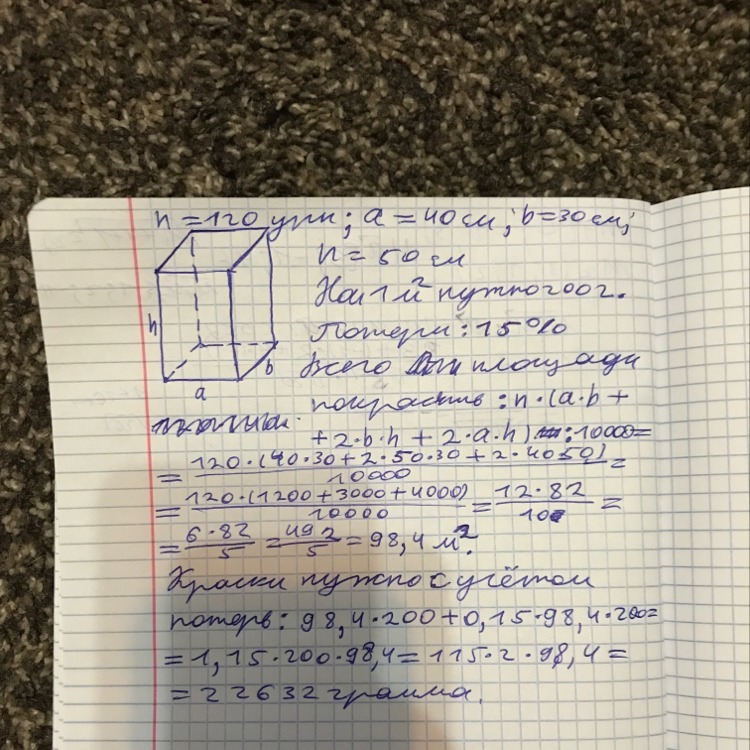 n = 120 упк; a = 40 см; b = 30 см;
h = 50 см
На 1 м² нужно 200 г.
Потери: 15%
Всего площади
покрасить: n·(a·b +
+ 2·b·h + 2·a·h) : 10000 =
= 120·(40·30 + 2·50·30 + 2·40·50) / 10000 =
= 120·(1200 + 3000 + 4000) / 10000 = 12·82 / 10 =
= 6·82 / 5 = 492 / 5 = 98,4 м².
Краски нужно с учётом
потерь: 98,4·200 + 0,15·98,4·200 =
= 1,15·200·98,4 = 115·2·98,4 =
= 22632 грамма.
h
b
a